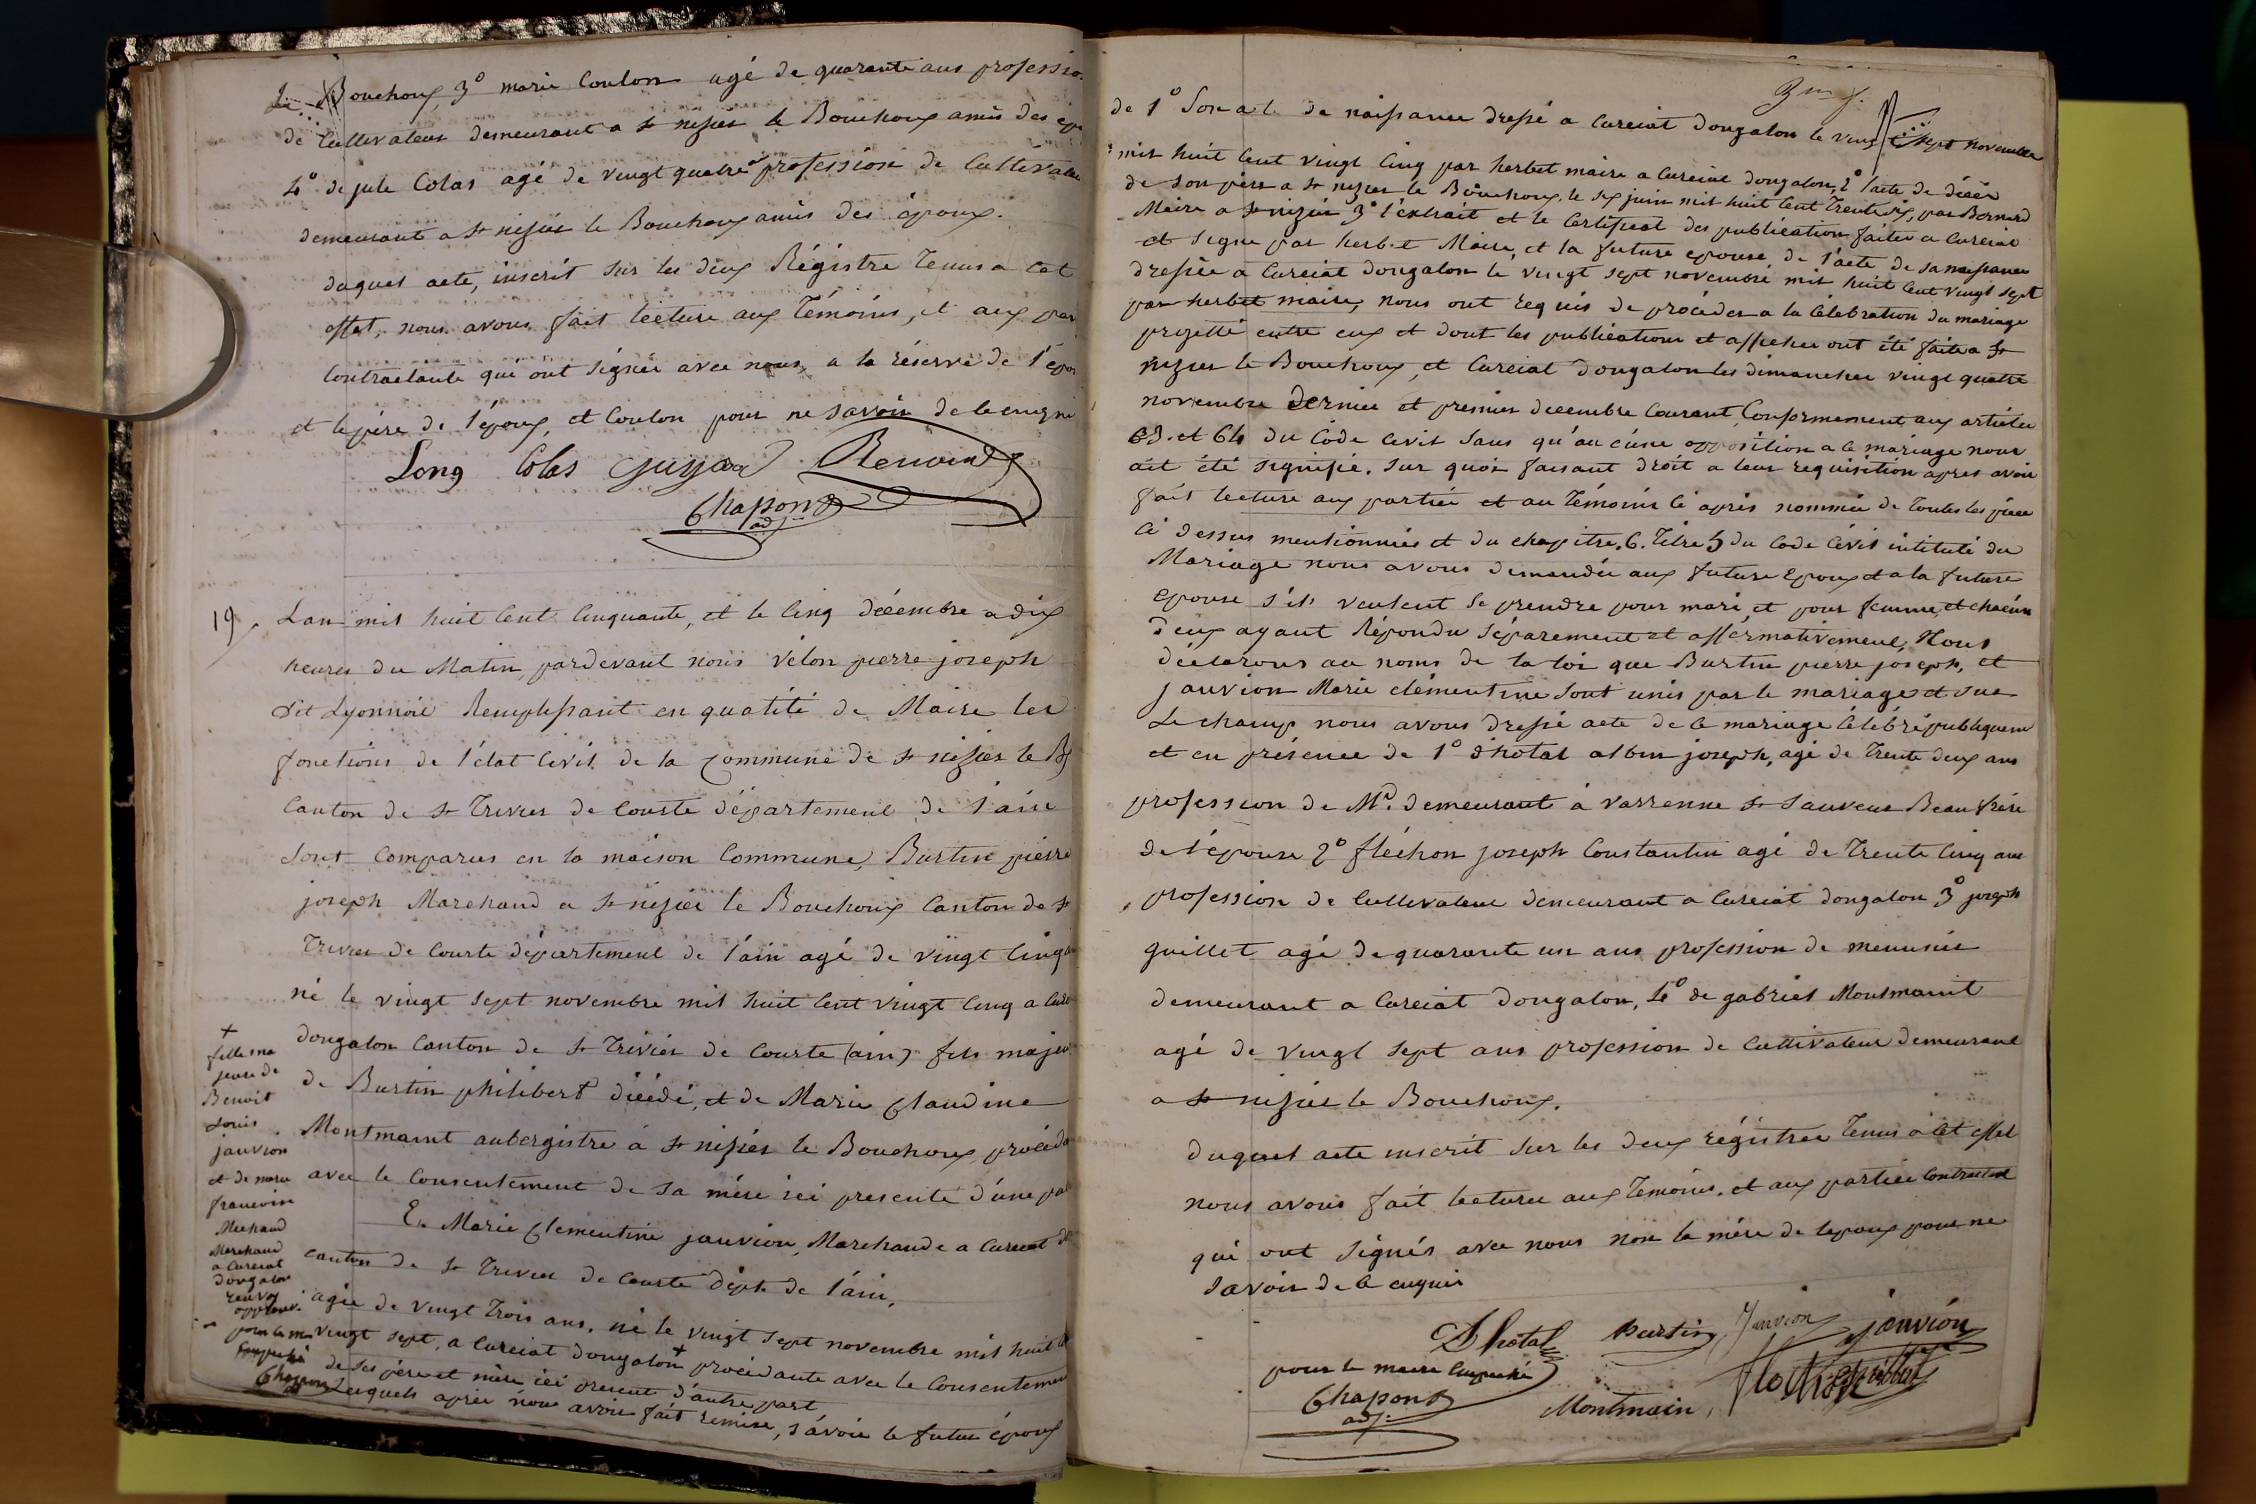 Le Bouchoux, 3° marie Coulon agé de quarante ans professio
de Cultivateur demeurant a st nizier le Bouchoux amis des épo
4° de jule Colas agé de vingt quatre profession de Cultivateu
demeurant a st nizier le Bouchoux amis des époux.
duquel acte, inscrit sur les deux Régistre Tenus a cet
effet, nous avons fait lecture aux Témoins, et aux par
Contractante qui ont signés avec nous, a la réserve de l'épou
et le père de l'époux, et Coulon pour ne savoir de ce enqui
Long Colas Renoud
Chapond
adj
19, Lan mil huit Cent Cinquante, et le Cinq décembre a dix
heures du Matin, pardevant nous Velon pierre joseph
dit Lyonnois Remplissant en qualité de Maire les
fonctions de l'état Civil de la Commune de st nizier le B
Canton de st Trivier de Courte département de l'ain
Sont Comparus en la maison Commune, Burtin pierre
joseph Marchand a st nizier le Bouchoux Canton de st
Trivier de Courte département de l'ain agé de vingt Cinq a
né le vingt sept novembre mil huit Cent vingt Cinq a Cure
dongalon Canton de st Trivier de Courte (ain) fils majeu
de Burtin philibert décédé, et de Marie Claudine
Montmaint aubergistre á st nizier le Bouchoux, procéda
avec le Consentement de sa mére ici presente d'une pa
Et Marie Clementine janvion, Marchande a Cureciat d
canton de st Trivier de Courte dépt. de l'ain,
agée de vingt Trois ans, né le vingt sept novembre mil huit C
vingt sept, a Cureciat dongalon + procédante avec le Consentemen
de ses père et mère ici present d'autre part
Lesquels aprés nous avoir fait remise, sávoir le futur époux
+
fille ma
jeure de
Benoit
Louis
janvion
et de marie
francoise
Mechaud
Marchand
a Cureciat
dongalon
renvoy
approuvé.
pour le m
Empeché
Chapond
adj
de 1° Son a t de naissance dressé a Cureciat dongalon le vingt sept novembre
mil huit Cent vingt Cinq par herbet maire a Cureciat dongalon, 2° l'acte de décés
de son père a st nizier le Bouchoux, le six juin mil huit Cent Trente six, par Bernard
Maire a st nizier 3° l'extrait et le Certificat des publication faites a Cureciat
et signe par herbet Maire, et la future epouse, de l'acte de sa naissance
dressée a Cureciat dongalon le vingt sept novembre mil huit Cent vingt sept
par herbet maire, nous ont requis de procéder a la Célébration du mariage
projetté entre eux et dont les publications et affiches ont été faite a st
nizier le Bouchoux, et Cureciat dongalon les dimanches vingt quatre
novembre dernier et premier decembre Courant, Conformement aux articles
63. et 64 du Code Civil Sans qu'aucune opposition a ce mariage nous
ait été signifié. sur quoi faisant droit a leur requisition apres avoir
fait lecture aux parties et au Témoins ci aprés nommés de Toutes les piece
Ci dessus mentionnées et du chapitre. 6. Titre 5 du Code Civil intitulé du
Mariage nous avons demandée aux future Epoux et a la future
epouse s'ils veulent se prendre pour mari, et pour femme, et chacun
deux ayant Répondu séparement et afférmativement, Nous
déclarons au noms de la loi que Burtin pierre joseph, et
janvion Marie clémentine sont unis par le mariage et sur
Le champ nous avons dressé acte de ce mariage Célébré publiquem
et en présence de 1° d'hotal albin joseph, agé de Trente deux ans
profession de Md. demeurant á varrenne st sauveur Beau frére
de l'épouse 2° fléchon joseph Constantin agé de Trente Cinq ans
, profession de Cultivateur demeurant a Cureciat dongalon, 3° joseph
guillet agé de quarante un ans profession de menusié
demeurant a Cureciat dongalon, 4° de gabriel Montmaint
agé de vingt sept ans profession de Cultivateur demeurant
a st nizier le Bouchoux.
duquel acte inscrit sur les deux régistres Tenus a Cet effet
nous avons fait lecture aux Témoins, et aux parties Contractant
qui ont signés avec nous non la mére de lepoux pour ne
savoir de ce enquis
Dhotal Burtin Janvion janvion
pour le maire Empeché
Chapond
adj.
Montmain, guillet